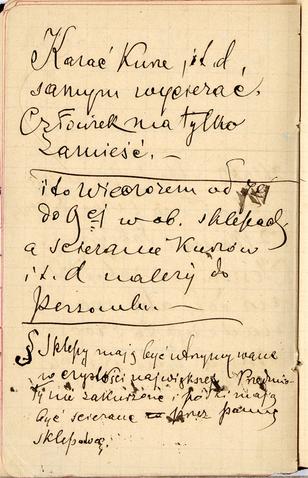 Karać Kurze, i t. d,
samym wycierać.
Człowiek ma tylko
zamieść. —
i to wieczorem od
do 9ej w ob. sklepach
a ścieranie Kurzów
i t. d należy do
Personelu. —
§ Sklepy mają być utrzymywane
w czystości największej.
ty nie zakurzone i półki mają
być ścierane przez pannę
sklepową.